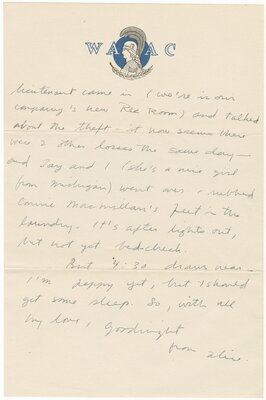 WAAC
lieutenant came in (we're in our
company's new Rec Room) and talked
about the theft - it now seems there
were 2 other losses the same day -
and Jay and I (she's a nice girl
from Michigan) went over & rubbed
Connie Macmillan's feet in the
laundry. It's after lights out,
but not yet bedcheck.
But 4:30 draws near -
I'm peppy yet, but I should
get some sleep. So, with all
my love, Goodnight
from Alice.